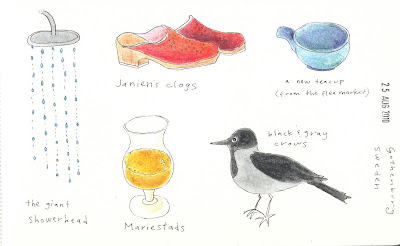 Janien's clogs
a new teacup
(from the flea market)
25 AUG 2010
Gothenburg
Sweden
the giant
showerhead
Mariestads
black & gray
crows